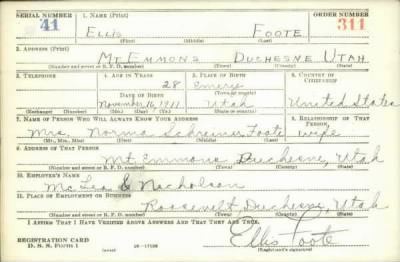 SERIAL NUMBER 1. NAME (Print) ORDER NUMBER
41 ELLIS FOOTE 311
(First) (Middle) (Last)
2. ADDRESS (Print)
MT. EMMONS DUCHESNE UTAH
(Number and street or R. F. D. number) (Town) (County) (State)
3. TELEPHONE 4. AGE IN YEARS 5. PLACE OF BIRTH 6. COUNTRY OF CITIZENSHIP
28 Emery
DATE OF BIRTH (Town or county)
November 16, 1911 Utah United States
(Exchange) (Number) (Mo.) (Day) (Yr.) (State or country)
7. NAME OF PERSON WHO WILL ALWAYS KNOW YOUR ADDRESS 8. RELATIONSHIP OF THAT PERSON
Mrs. Norma Schreiner Foote wife
(Mr., Mrs., Miss) (First) (Middle) (Last)
9. ADDRESS OF THAT PERSON
Mt. Emmons Duchesne, Utah
(Number and street or R. F. D. number) (Town) (County) (State)
10. EMPLOYER'S NAME
Mc Lea & Nicholson
11. PLACE OF EMPLOYMENT OR BUSINESS
Roosevelt, Duchesne, Utah
(Number and street or R. F. D. number) (Town) (County) (State)
I AFFIRM THAT I HAVE VERIFIED ABOVE ANSWERS AND THAT THEY ARE TRUE.
REGISTRATION CARD
D. S. S. FORM 1 Ellis Foote
(Registrant's signature)